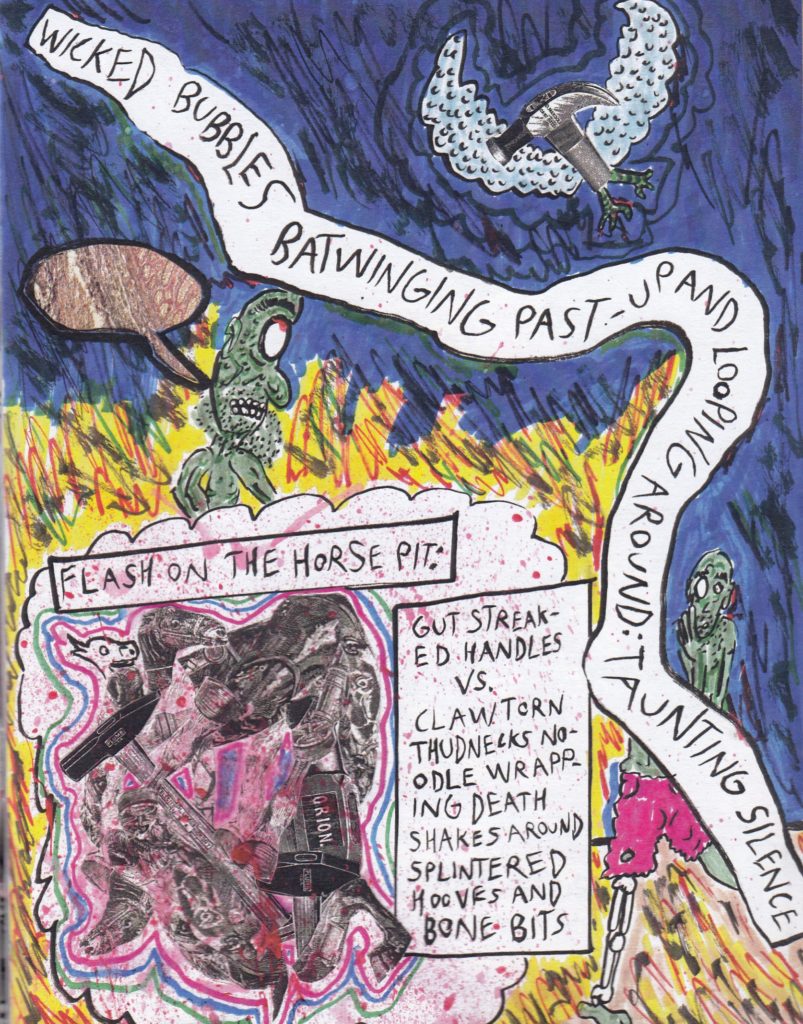 WICKED BUBBLES BATWINGING PAST-UP AND LOOPING AROUND: TAUNTING SILENCE
FLASH ON THE HORSE PIT:
GUT STREAK-
ED HANDLES
VS.
CLAW TORN
THUDNECKS NO-
ODLE WRAPP-
ING DEATH
SHAKES AROUND
SPLINTERED
HOOVES AND
BONE BITS
ORION